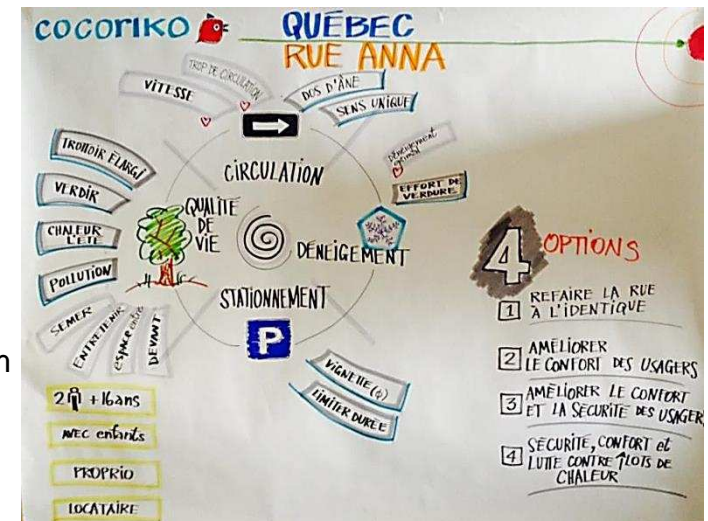 cocoriko
QUÉBEC
RUE ANNA
TROP DE CIRCULATION
VITESSE
DOS D'ÂNE
SENS UNIQUE
CIRCULATION
Déneigement
EFFORT DE
VERDURE
TROTTOIR ÉLARGI
VERDIR
CHALEUR
L'ÉTÉ
POLLUTION
SEMER
ENTRETENIR
espace entre
DEVANT
QUALITÉ
DE
VIE
DÉNEIGEMENT
STATIONNEMENT
P
VIGNETTE ($)
LIMITER DURÉE
n
2 + 16ans
AVEC enfants
PROPRIO
LOCATAIRE
4 OPTIONS
1 REFAIRE LA RUE
À L'IDENTIQUE
2 AMÉLIORER
LE CONFORT DES USAGERS
3 AMÉLIORER LE CONFORT
ET LA SÉCURITÉ DES USAGERS
4 SÉCURITÉ, CONFORT et
LUTTE CONTRE ÎLOTS DE
CHALEUR